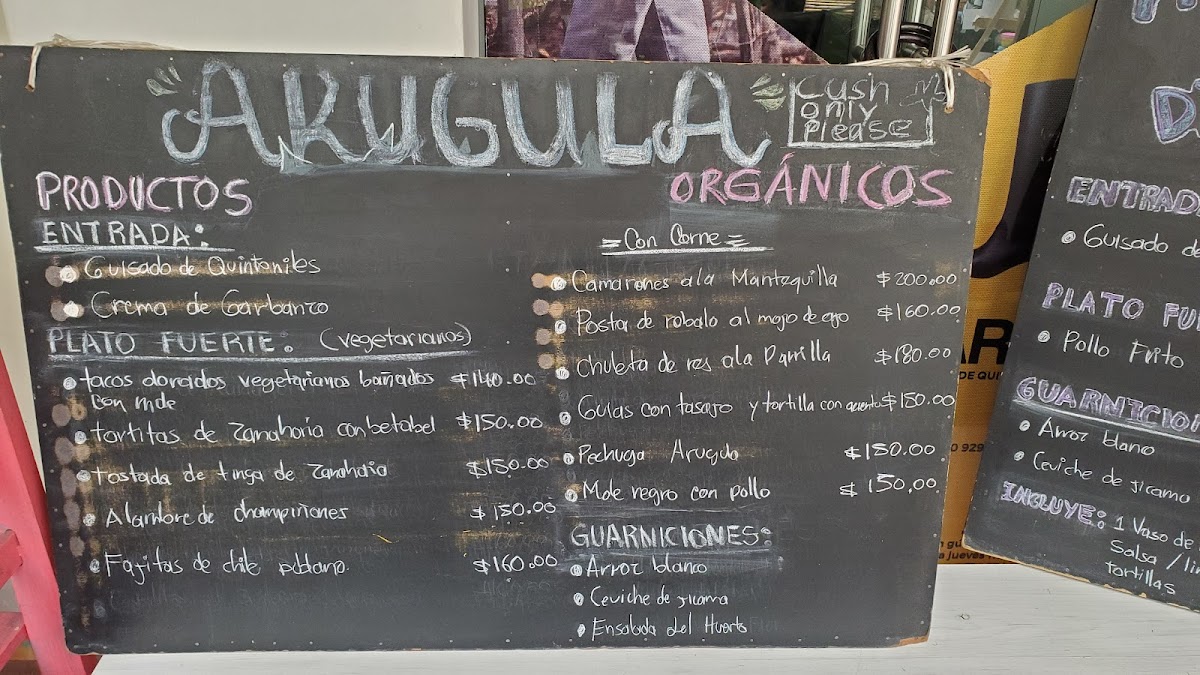 ARUGULA
Cash
only
Please
PRODUCTOS
ORGÁNICOS
ENTRADA:
• Guisado de Quintoniles
• Crema de Garbanzo
PLATO FUERTE: (vegetarianos)
• tacos dorados vegetarianos bañados $140.00
con mole
• tortitas de Zanahoria con betabel $150.00
• tostada de tinga de Zanahoria $150.00
• Alambre de champiñones $150.00
• Fajitas de chile poblano $160.00
= Con Carne =
• Camarones a la Mantequilla $200.00
• Postas de robalo al mojo de ajo $160.00
• Chuleta de res a la Parrilla $180.00
• Guias con tasajo y tortilla con asiento $150.00
• Pechuga Arugula $150.00
• Mole negro con pollo $150.00
GUARNICIONES:
• Arroz blanco
• Ceviche de jicama
• Ensalada del Huerto
ENTRADA
• Guisado de
PLATO FU
• Pollo Frito
GUARNICION
• Arroz blanco
• Ceviche de jicama
INCLUYE: 1 Vaso de
Salsa / li
tortillas
AR
DE QUI
0 929
a jueves